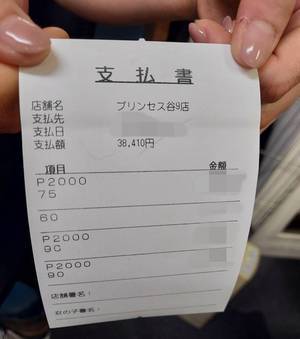 支払書
店舗名 プリンセス谷9店
支払先
支払日
支払額 38,410円
項目 金額
P2000
75
60
P2000
90
P2000
90
店舗署名：
女の子署名：